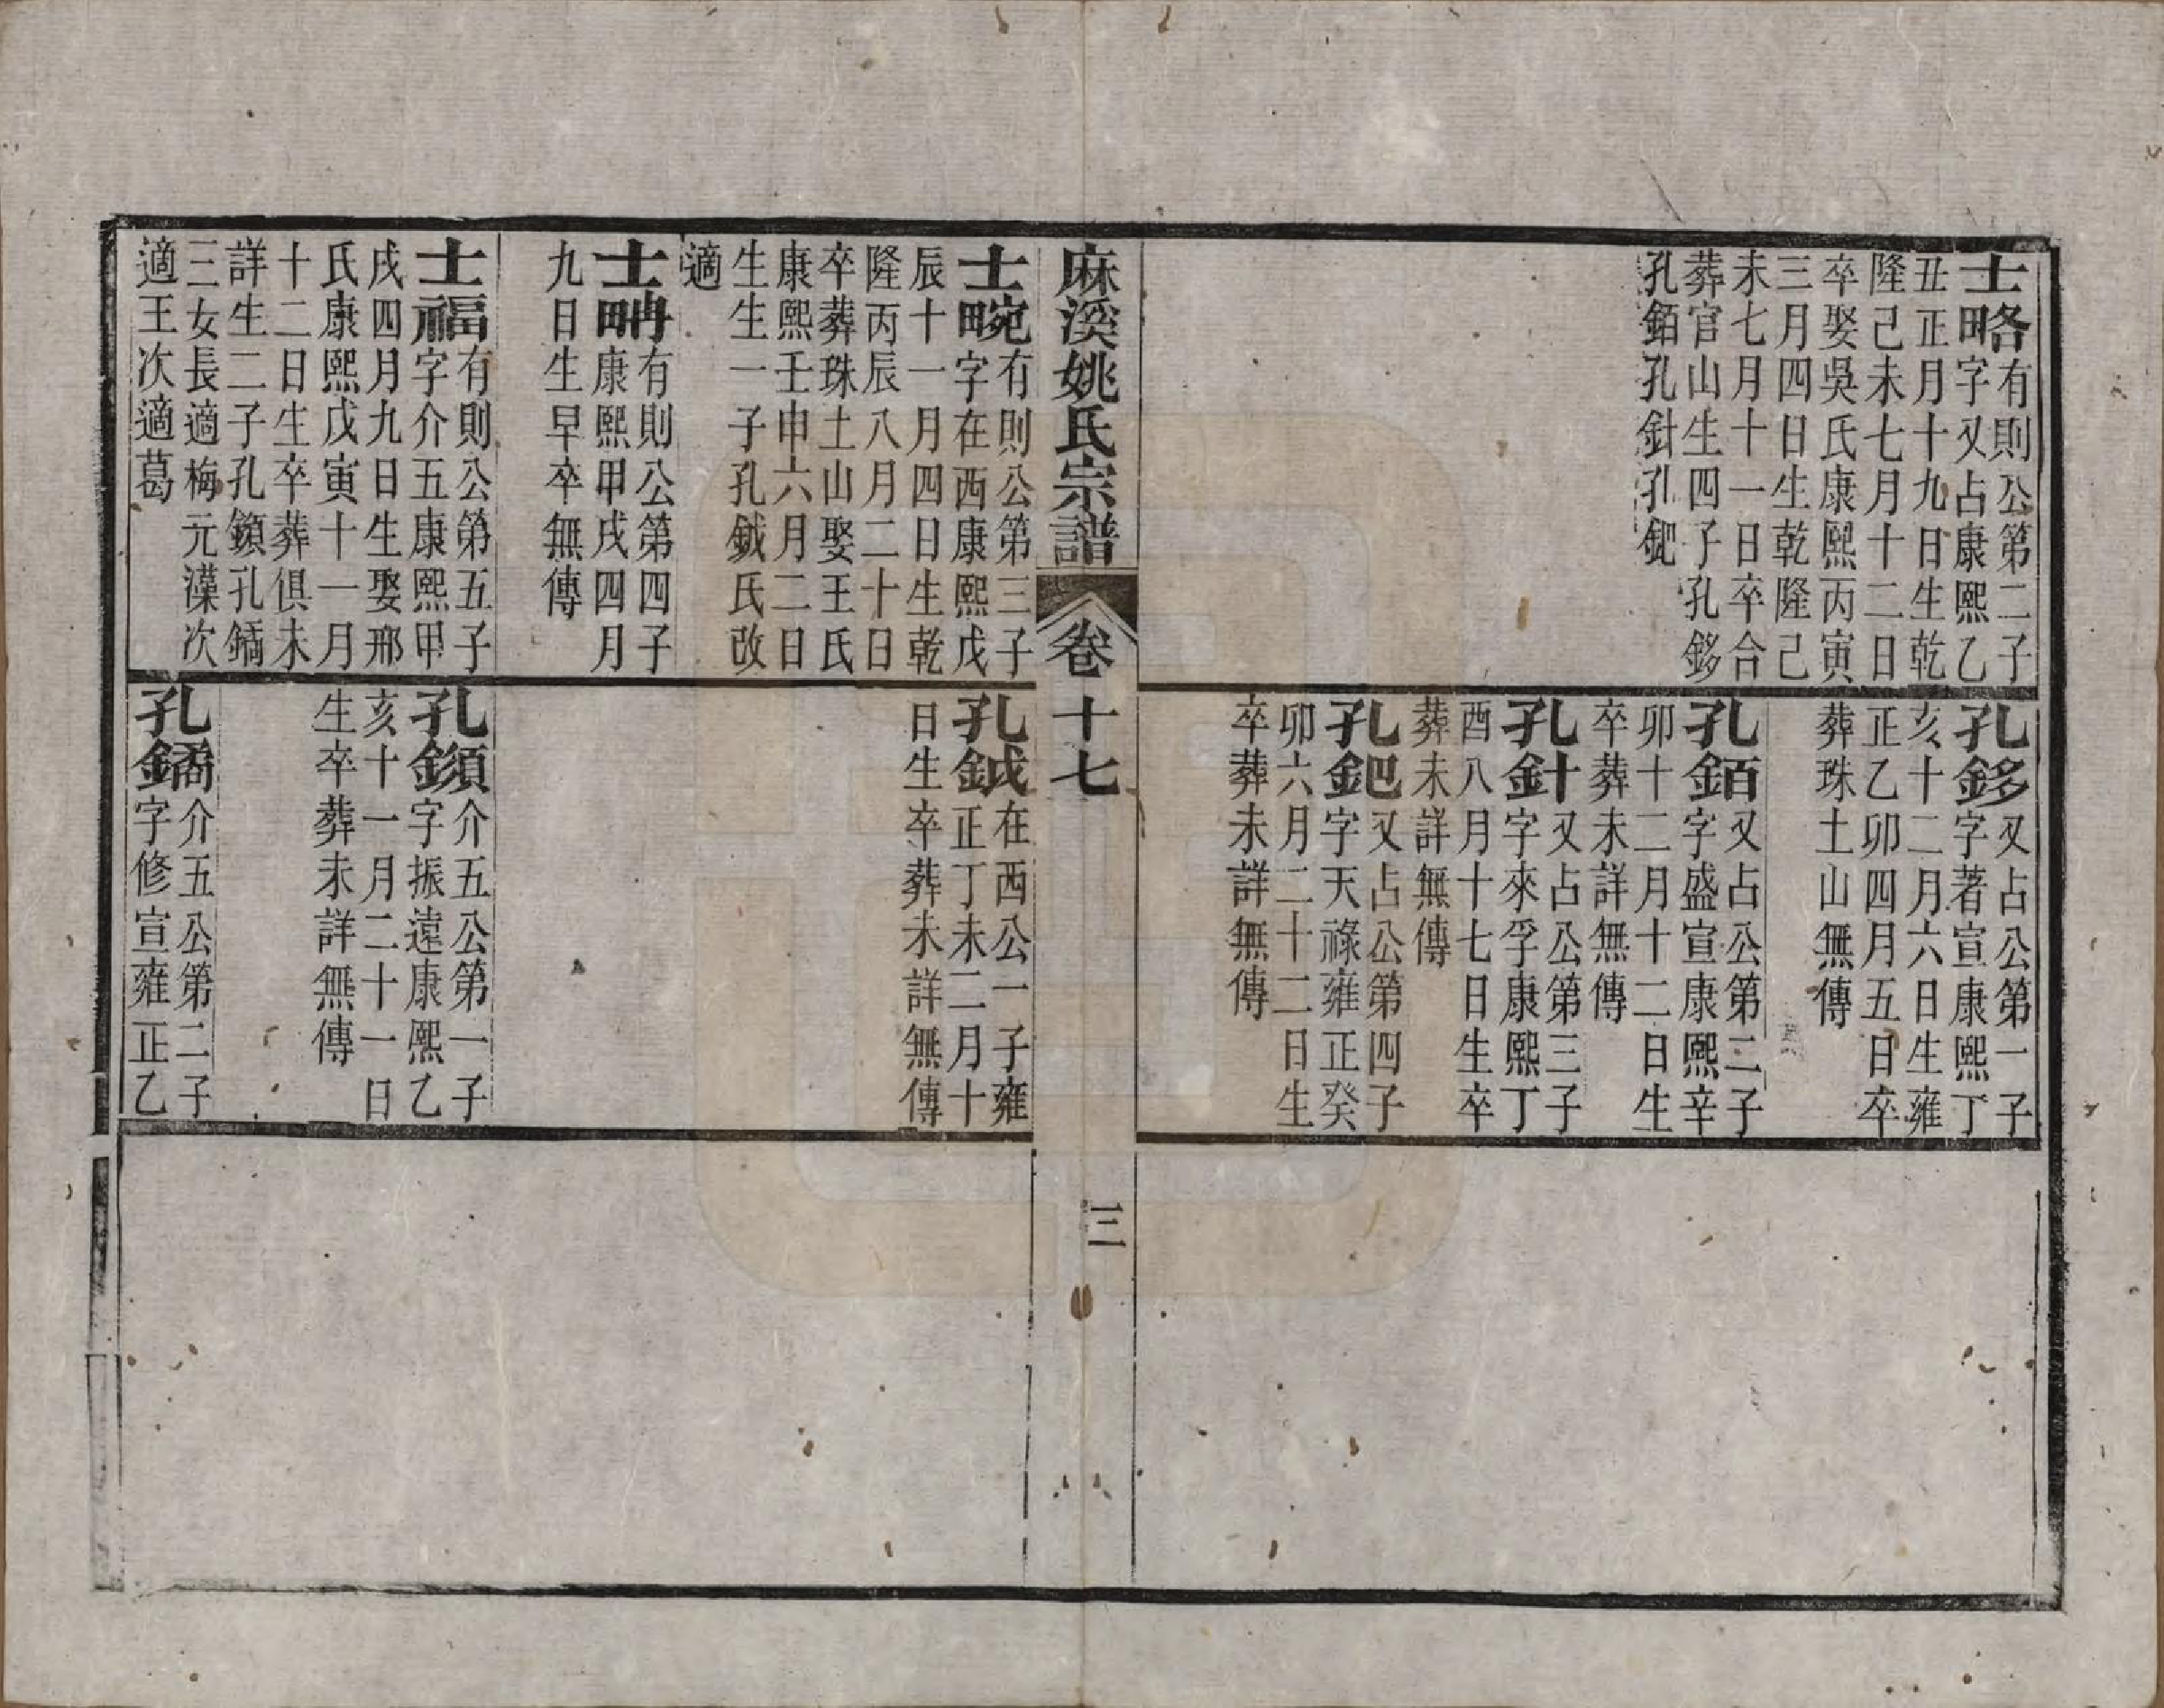 士略有則公第二子
字又占康熙乙
丑正月十九日生乾
隆己未七月十二日
卒娶吳氏康熙丙寅
三月四日生乾隆己
未七月十一日卒合
葬官山生四子孔鉹
孔銆孔針孔鈀
孔鉹又占公第一子
字著宣康熙丁
亥十二月六日生雍
正乙卯四月五日卒
葬珠土山無傳
孔銆又占公第二子
字盛宣康熙辛
卯十二月十二日生
卒葬未詳無傳
孔針又占公第三子
字來孚康熙丁
酉八月十七日生卒
葬未詳無傳
孔鈀又占公第四子
字天祿雍正癸
卯六月二十二日生
卒葬未詳無傳
麻溪姚氏宗譜
卷十七
三
士畹有則公第三子
字在西康熙戊
辰十一月四日生乾
隆丙辰八月二十日
卒葬珠土山娶王氏
康熙壬申六月二日
生生一子孔鉞氏改
適
士䎃有則公第四子
康熙甲戌四月
九日生早卒無傳
士福有則公第五子
字介五康熙甲
戌四月九日生娶邢
氏康熙戊寅十一月
十二日生卒葬俱未
詳生二子孔鎖孔鐍
三女長適梅元澕次
適王次適葛
孔鉞在西公一子雍
正丁未二月十
日生卒葬未詳無傳
孔鎖介五公第一子
字振遠康熙乙
亥十一月二十一日
生卒葬未詳無傳
孔鐍介五公第二子
字修宣雍正乙